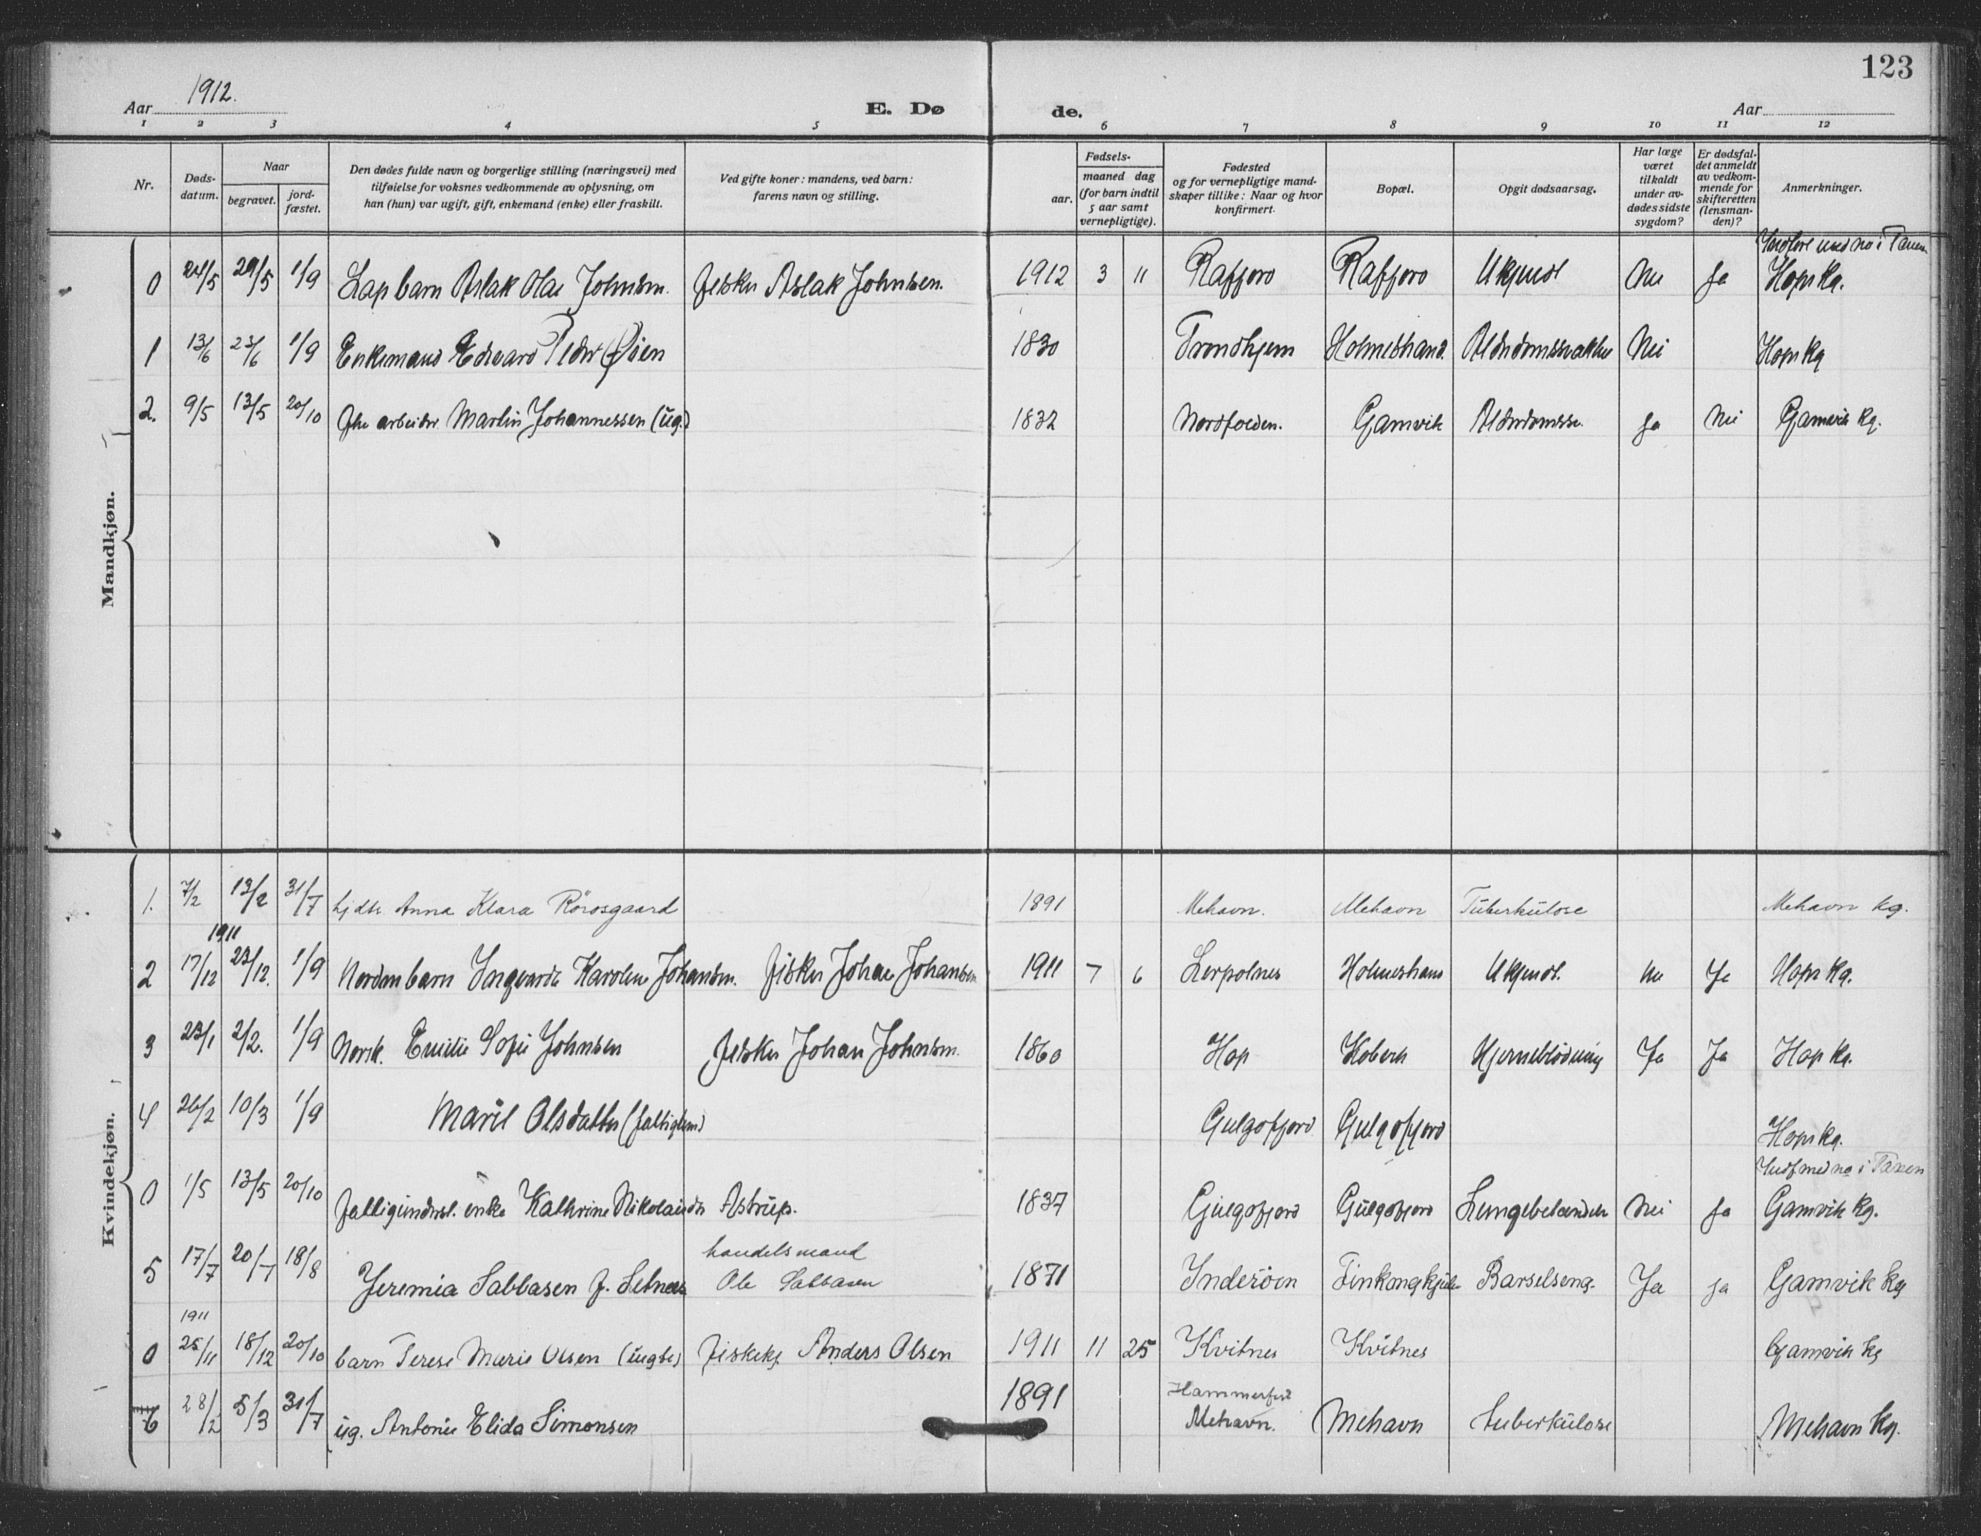 123
Aar 1912.
E. Dø
de.
Aar
1 2 3 4 5 6 7 8 9 10 11 12
Nr.
Døds-
datum.
Naar
begravet.
jord-
fæstet.
Den dødes fulde navn og borgerlige stilling (næringsvei) med
tilføielse for voksnes vedkommende av oplysning, om
han (hun) var ugift, gift, enkemand (enke) eller fraskilt.
Ved gifte koner: mandens, ved barn:
farens navn og stilling.
Fødsels-
aar.
maaned dag
(for barn indtil
5 aar samt
vernepligtige).
Fødested
og for vernepligtige mand-
skaper tillike: Naar og hvor
konfirmert.
Bopæl.
Opgit dødsaarsag.
Har læge
været
tilkaldt
under av-
dødes sidste
sygdom?
Er dødsfal-
det anmeldt
av vedkom-
mende for
skifteretten
(lensman-
den)?
Anmerkninger.
Mandkjøn.
Indført med no i Tanen
0 24/5 29/5 1/9 Lap barn Aslak Olai Johnsen. fisker Aslak Johnsen. 1912 3 11 Rafjord Rafjord Ukjendt Nei Ja Hops kg.
1 13/6 23/6 1/9 Enkemand Edvard Peder Øien 1830 Trondhjem Holmeshand Alderdomssvakhed Nei Hops kg
2. 9/5 13/5 20/10 fhv arbeider Martin Johannessen (ug.) 1832 Nordfolden. Gamvik Alderdomssv. Ja Nei Gamvik kg.
Kvindekjøn.
1. 7/2 13/2 31/7 Anna Klara Rörosgaard 1891 Mehavn. Mehavn Tuberkulose Mehavn kg.
1911
2 17/12 23/12. 1/9 Norsk barn Ingvarda Karoline Johansen. fisker Johan Johansen 1911 7 6 Lerpolnes Holmeshavn Ukjendt. Nei Ja Hops kg.
3 23/1 2/2. 1/9 Norsk. Emilie Sofie Johnsen fisker Johan Johnsen. 1860 Hop Koberk Hjerneblödning Ja Ja Hop kg.
4 26/2 10/3 1/9 Marit Olsdatter (fattiglem) Gulgofjord Gulgofjord Hops kg.
Indf med no i Tanen
0 1/5 13/5 20/10 fattigunderst. enke Kathrine Nikolaisdr Astrup. 1837 Gulgofjord Gulgofjord Lungebetændelse Nei Ja Gamvik kg.
handelsmand
5 17/7 20/7 18/8 Jeremia Sabbasen f. Setnes Ole Sabbasen 1871 Inderöen Finkongkjeilen Barselseng. Ja Ja Gamvik kg
1911
0 25/11 18/12 20/10 barn Terese Marie Olsen (uegte) fiskekj. Anders Olsen 1911 11 25 Kvitnes Kvitnes Gamvik kg
Hammerfest
6 28/2 5/3 31/7 ug. Antonie Elida Simonsen 1891 Mehavn. Mehavn Tuberkulose Mehavn kg.